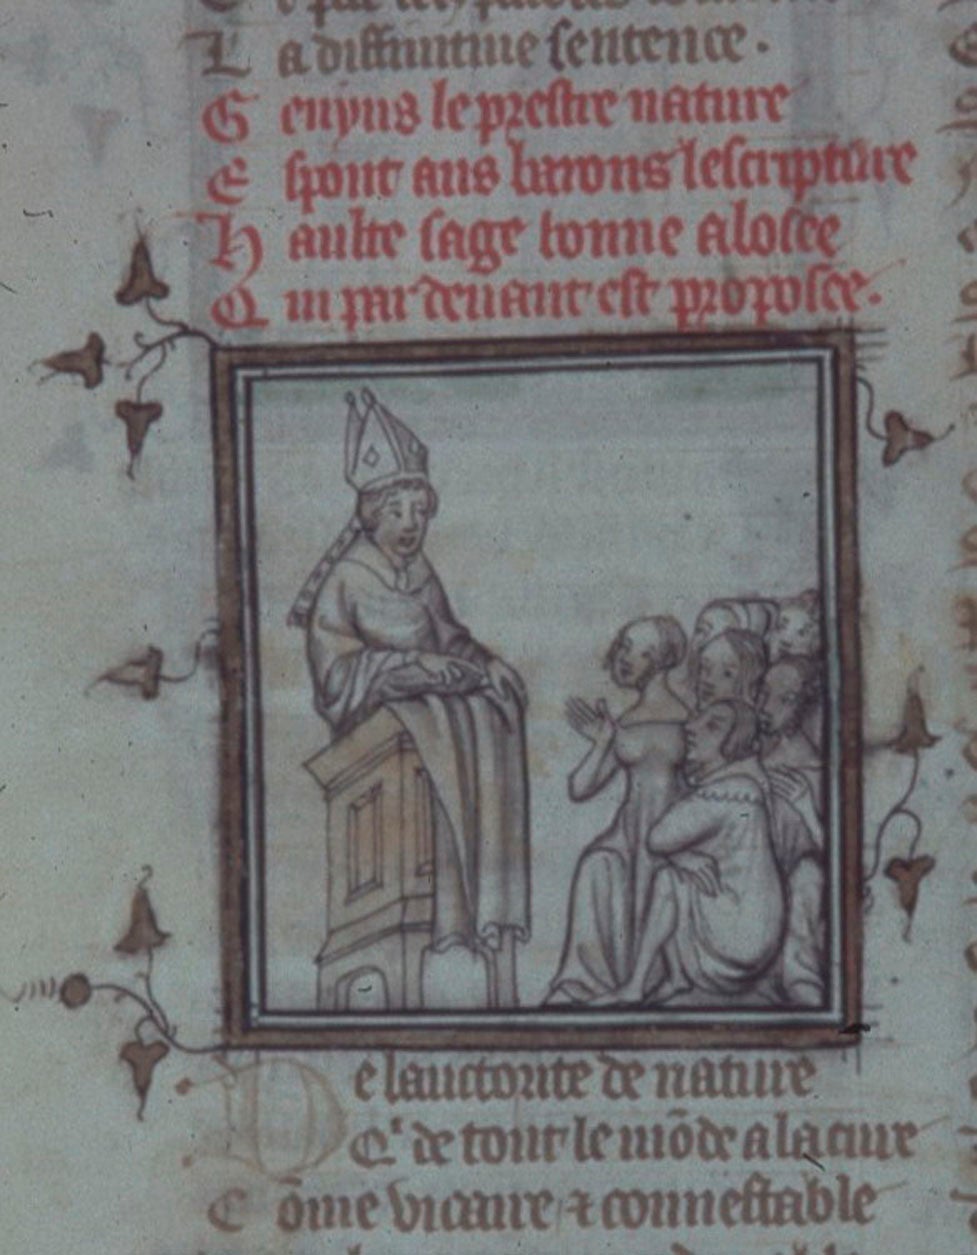 La diffinitiue sentence.
Genyus le prestre nature
Espont aus barons lescripture
Haulte sage bonne alosee
Qui par deuant est proposee.
De lauctorite de nature
Qͥ de tout le mōde a la cure
Cōme vicaire ⁊ connestable